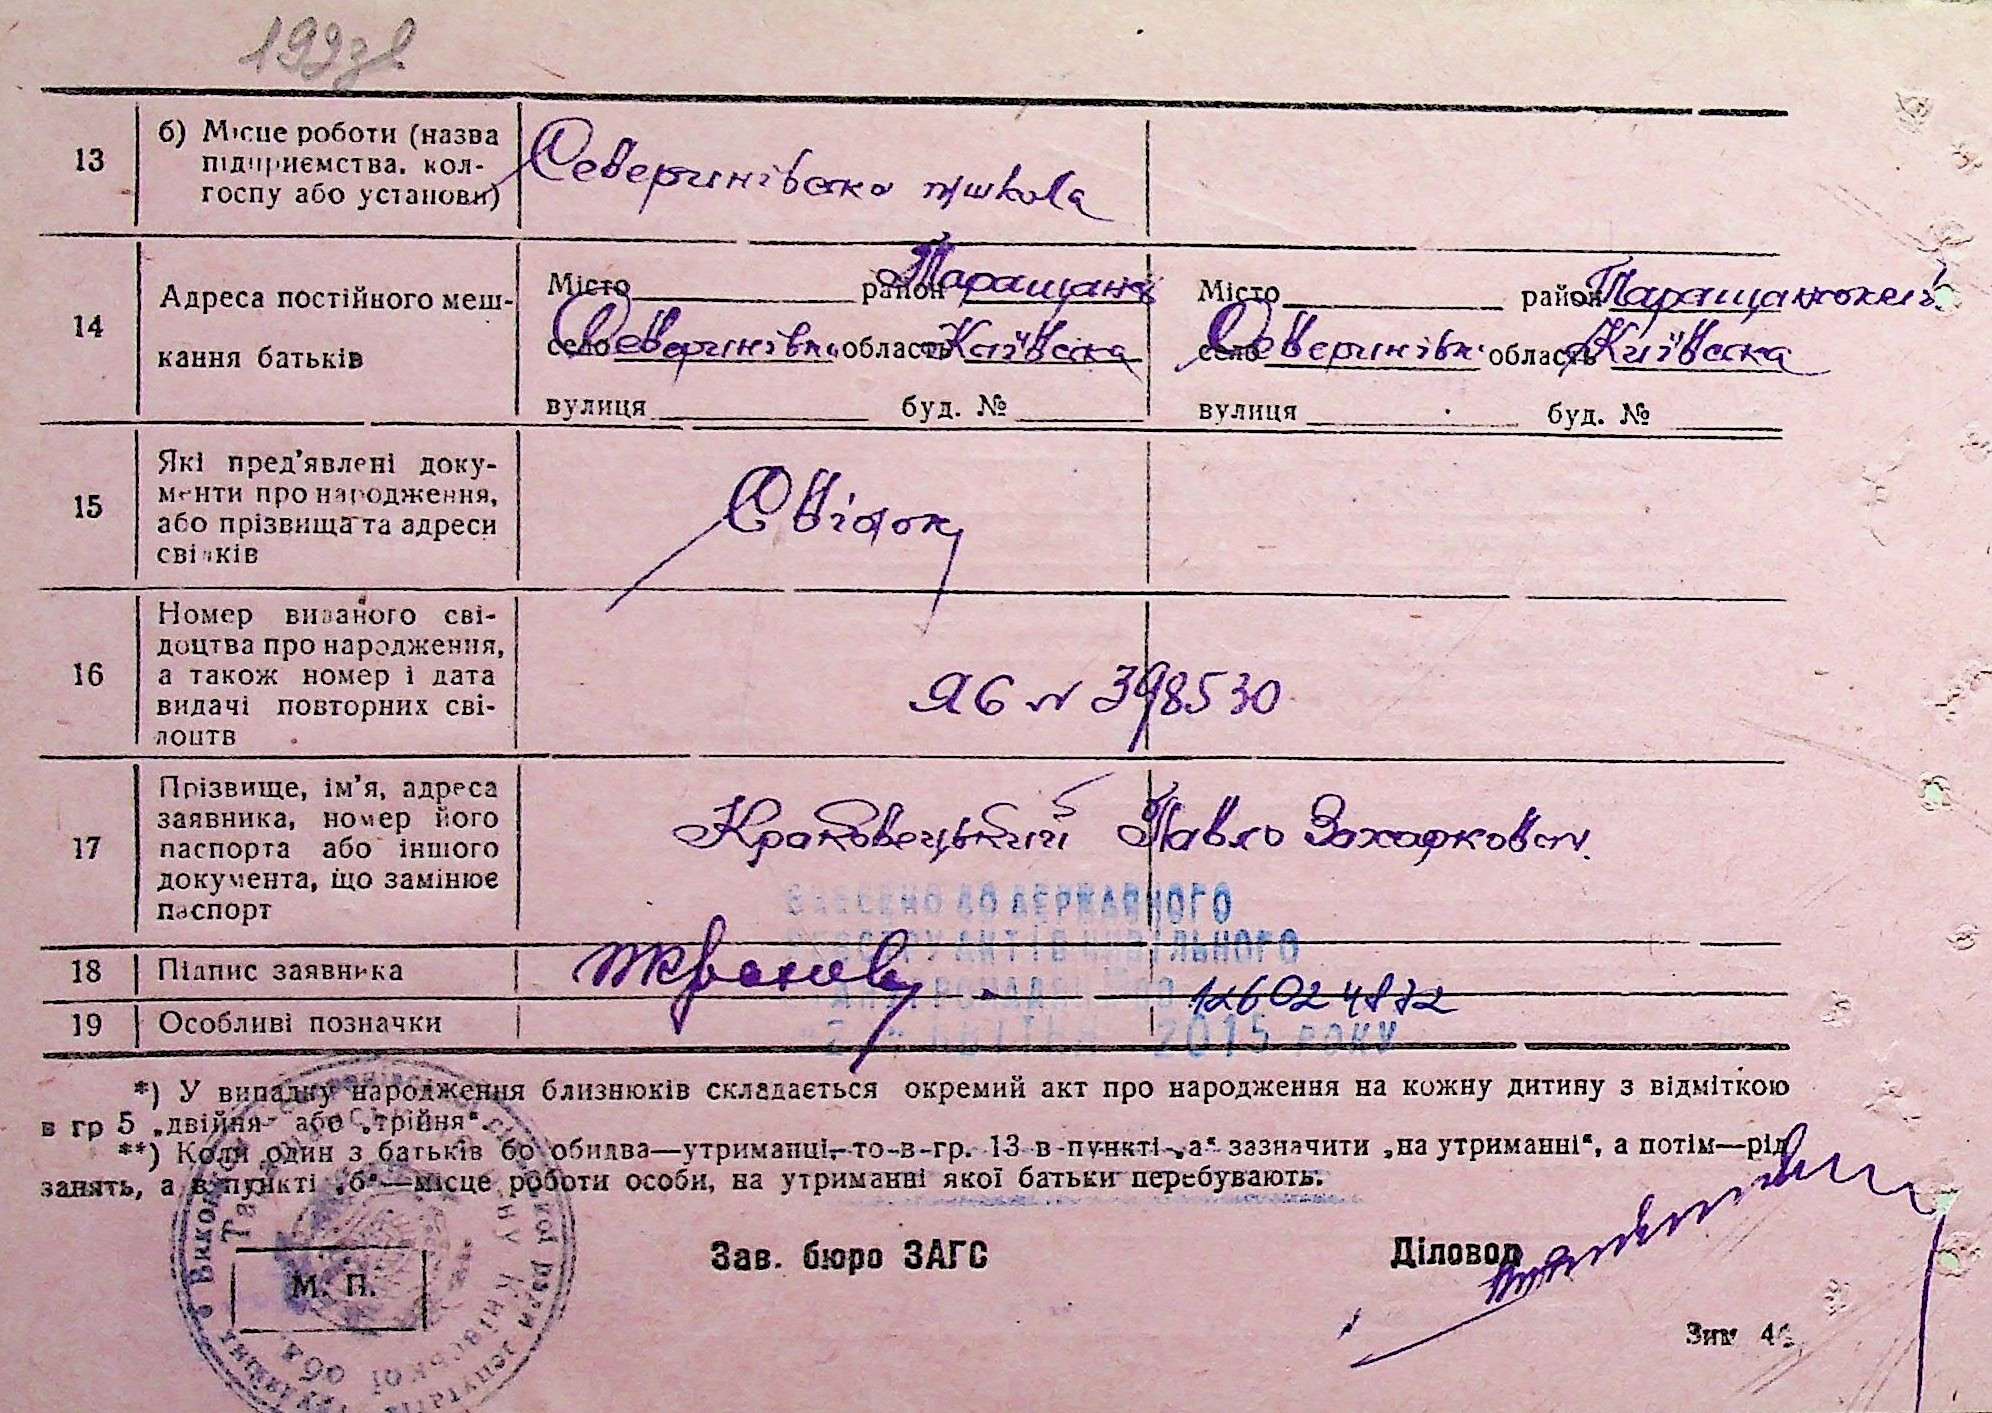 193
13
б) Місце роботи (назва
підприємства, кол-
госпу або установи)
Северинівська п/школа
14
Адреса постійного меш-
кання батьків
Місто район Таращанс
село Северинівка область Київська
вулиця буд. №
Місто район Таращанський
село Северинівка область Київська
вулиця буд. №
15
Які пред’явлені доку-
менти про народження,
або прізвища та адреси
свідків
Свідок
16
Номер виданого сві-
доцтва про народження,
а також номер і дата
видачі повторних сві-
доцтв
ЯБ № 398530
17
Прізвище, ім’я, адреса
заявника, номер його
паспорта або іншого
документа, що замінює
паспорт
Краковецький Павло Захаркович
ВНЕСЕНО ДО ДЕРЖАВНОГО
РЕЄСТРУ АКТІВ ЦИВІЛЬНОГО
2015 РОКУ
18
Підпис заявника
12602 4872
19
Особливі позначки
*) У випадку народження близнюків складається окремий акт про народження на кожну дитину з відміткою
в гр 5 „двійня“ або „трійня“.
**) Коли один з батьків бо обидва—утриманці,-то-в-гр. 13 в пункті „а“ зазначити „на утриманні“, а потім—рід
занять, а в пункті „б“—місце роботи особи, на утриманні якої батьки перебувають.
М. П.
Зав. бюро ЗАГС
Діловод